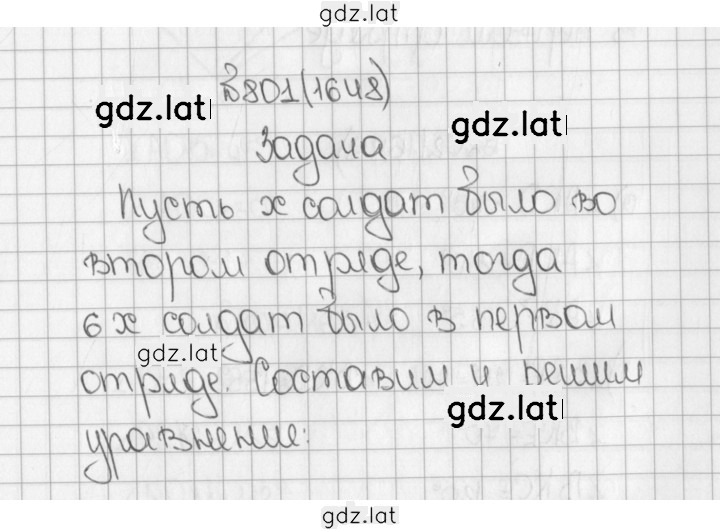 gdz.lat
№801(1648)
gdz.lat gdz.lat
Задача
Пусть x солдат было во
втором отряде, тогда
6x солдат было в первом
gdz.lat
отряде. Составим и решим
gdz.lat
уравнение:
gdz.lat